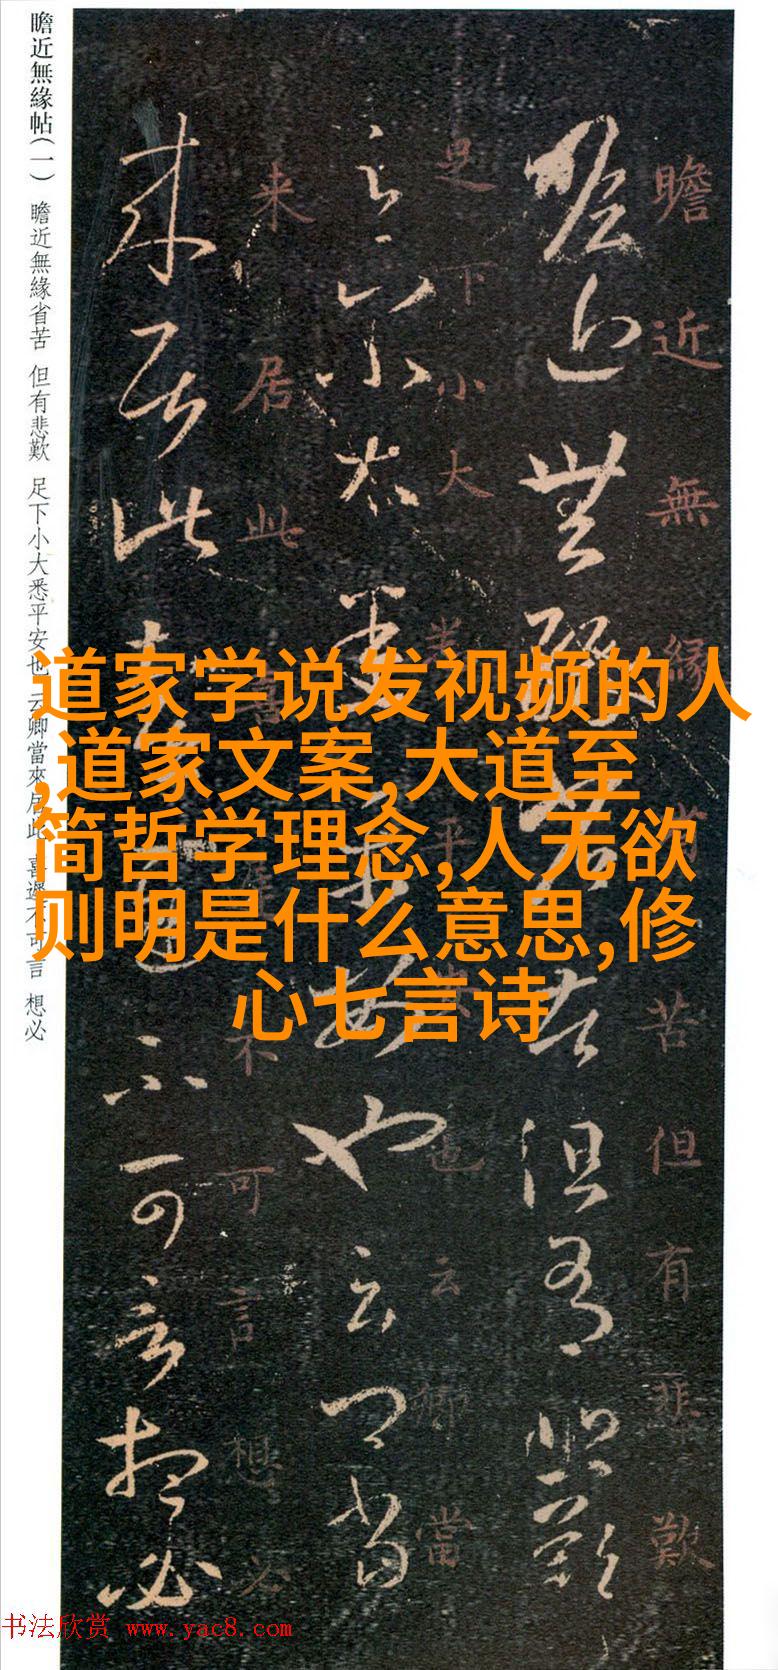 瞻近無緣帖(一) 瞻近無緣省苦 但有悲歎 足下小大悉平安也 云卿當來居此 喜遲不可言 想必
瞻近無緣省苦但有悲歎
足下小大悉平安也云卿當
来居此喜遲不可言想必
道家学说发视频的人
,道家文案,大道至
简哲学理念,人无欲
则明是什么意思,修
心七言诗
书法欣赏 www.yac8.com